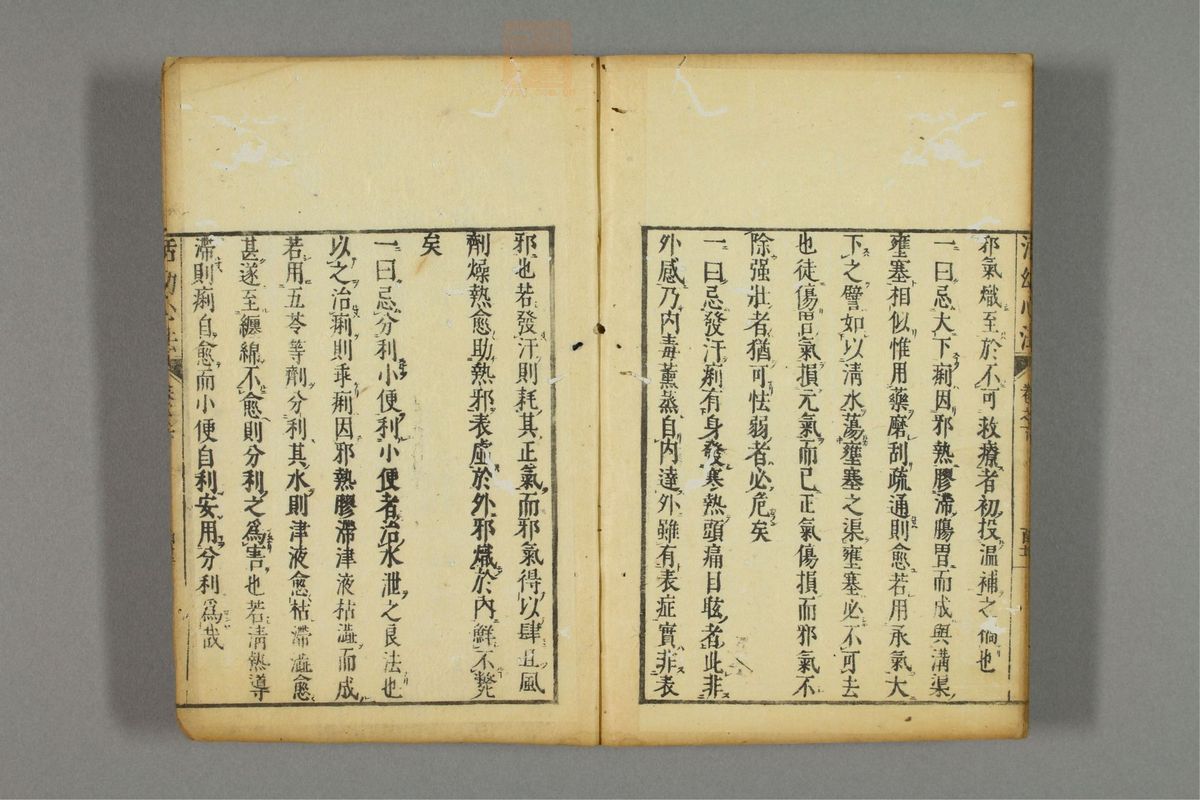 邪氣熾至於不可救療者初投溫補之禍也
一曰忌大下痢因邪熱膠滯膓胃而成與溝渠
壅塞相似惟用藥磨刮疏通則愈若用承氣大
下之譬如以淸水蕩壅塞之渠壅塞必不可去
也徒傷胃氣損元氣而已正氣傷損而邪氣不
除强壯者猶可怯弱者必危矣
一曰忌發汗痢有身發寒熱頭痛目眩者此非
外感乃内毒薰蒸自内達外雖有表症實非表
邪也若發汗則耗其正氣而邪氣得以肆且風
劑燥熱愈助熱邪表虛於外邪熾於内鮮不斃
矣
一曰忌分利小便利小便者治水泄之良法也
以之治痢則乖痢因邪熱膠滯津液枯澁而成
若用五苓等劑分利其水則津液愈枯滯澁愈
甚遂至纏綿不愈則分利之爲害也若淸熱導
滯則痢自愈而小便自利安用分利爲哉
活幼心法